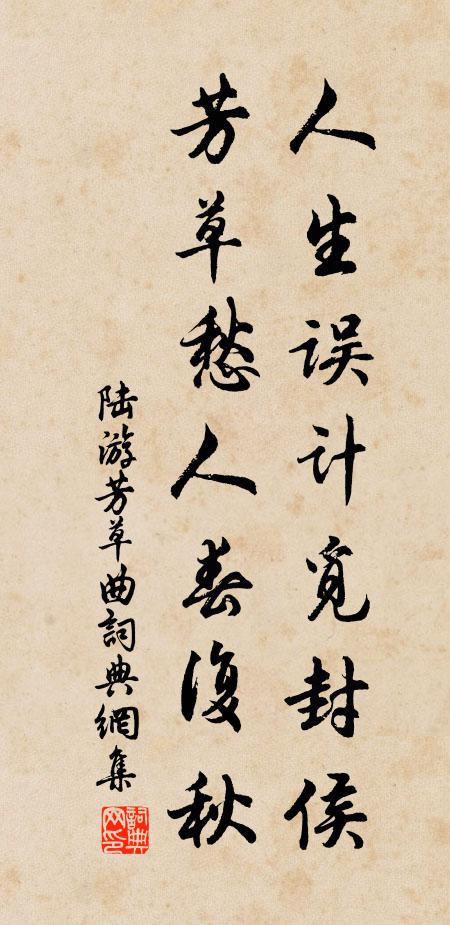 人生误计觅封侯
芳草愁人春復秋
陆游芳草曲詞典網集
詞典
网印